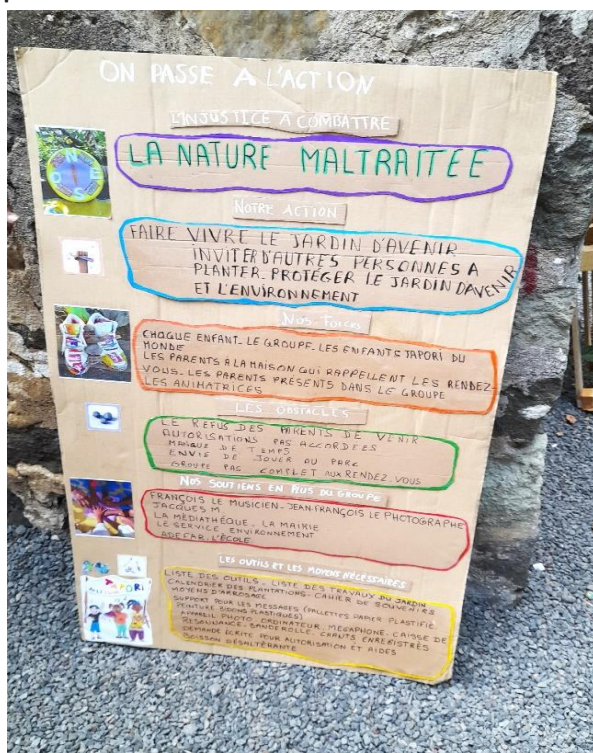 ON PASSE A L'ACTION
L'INJUSTICE A COMBATTRE
LA NATURE MALTRAITEE
NOTRE ACTION
FAIRE VIVRE LE JARDIN D'AVENIR
INVITER D'AUTRES PERSONNES A
PLANTER. PROTÉGER LE JARDIN D'AVENIR
ET L'ENVIRONNEMENT
NOS FORCES
CHAQUE ENFANT. LE GROUPE. LES ENFANTS TAPORI DU
MONDE
LES PARENTS A LA MAISON QUI RAPPELLENT LES RENDEZ-
VOUS. LES PARENTS PRESENTS DANS LE GROUPE
LES ANIMATRICES
LES OBSTACLES
LE REFUS DES PARENTS DE VENIR
AUTORISATIONS PAS ACCORDEES
MANQUE DE TEMPS
ENVIE DE JOUER AU PARC
GROUPE PAS COMPLET AUX RENDEZ-VOUS
NOS SOUTIENS EN PLUS DU GROUPE
FRANÇOIS LE MUSICIEN. JEAN-FRANÇOIS LE PHOTOGRAPHE
JACQUES M.
LA MÉDIATHÉQUE. LA MAIRIE
LE SERVICE ENVIRONNEMENT
ADEFAR. L'ÉCOLE
LES OUTILS ET LES MOYENS NÉCESSAIRES
LISTE DES OUTILS. LISTE DES TRAVAUX DU JARDIN
CALENDRIER DES PLANTATIONS. CAHIER DE SOUVENIRS
MOYENS D'ARROSAGE
SUPPORT POUR LES MESSAGES (PALLETTES PAPIER PLASTIFIÉ
PEINTURE BIDONS PLASTIQUES)
APPAREIL PHOTO. ORDINATEUR. MEGAPHONE. CAISSE DE
RESONNANCE. BANDEROLLE. CHANTS ENREGISTRÉS
DEMANDE ÉCRITE POUR AUTORISATION ET AIDES
BOISSON DÉSALTÉRANTE
N
E
S
O
TAPORI